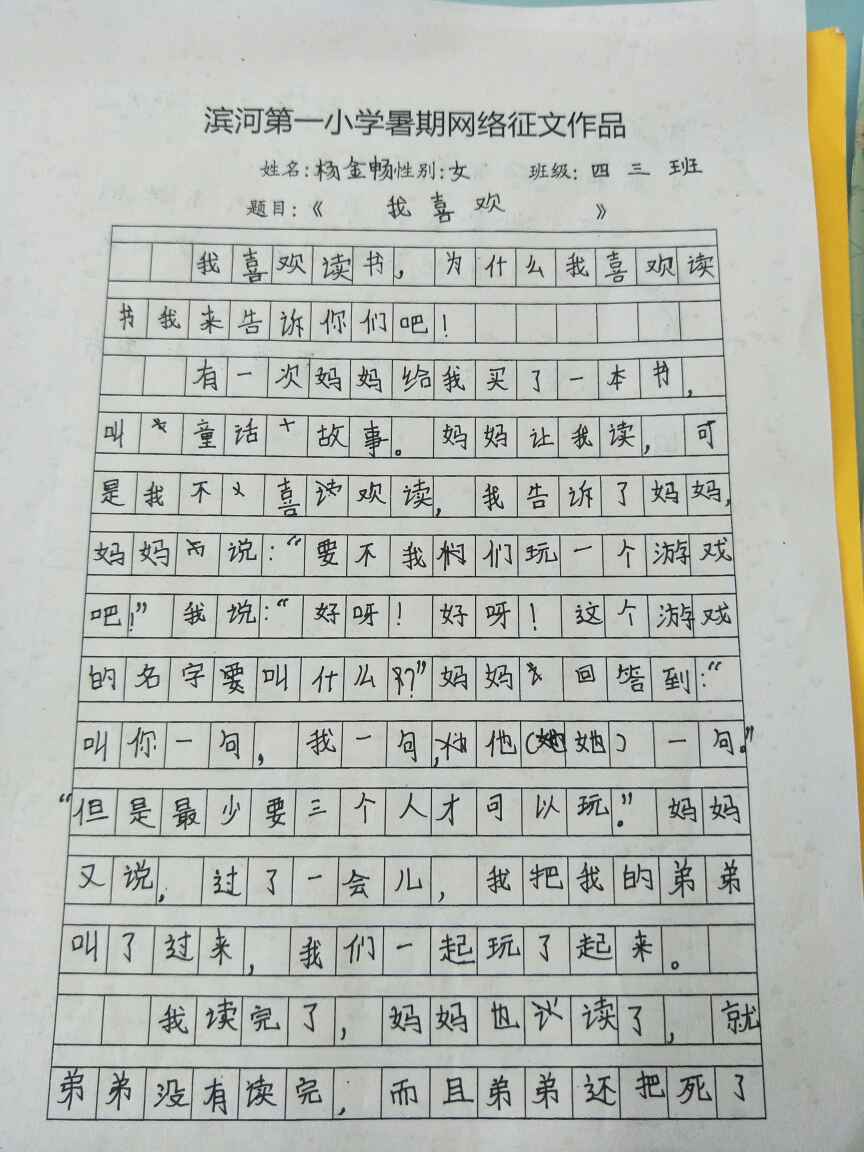 滨河第一小学暑期网络征文作品
姓名:杨金畅性别:女 班级:四 三 班
题目:《 我喜欢 》
我喜欢读书，为什么我喜欢读
书我来告诉你们吧！
有一次妈妈给我买了一本书，
叫童话故事。妈妈让我读，可
是我不喜欢读，我告诉了妈妈，
妈妈说:“要不我们玩一个游戏
吧!”我说:“好呀！好呀！这个游戏
的名字要叫什么?”妈妈回答到:“
叫你一句，我一句，他(她)一句。”
“但是最少要三个人才可以玩。”妈妈
又说，过了一会儿，我把我的弟弟
叫了过来，我们一起玩了起来。
我读完了，妈妈也读了，就
弟弟没有读完，而且弟弟还把死了